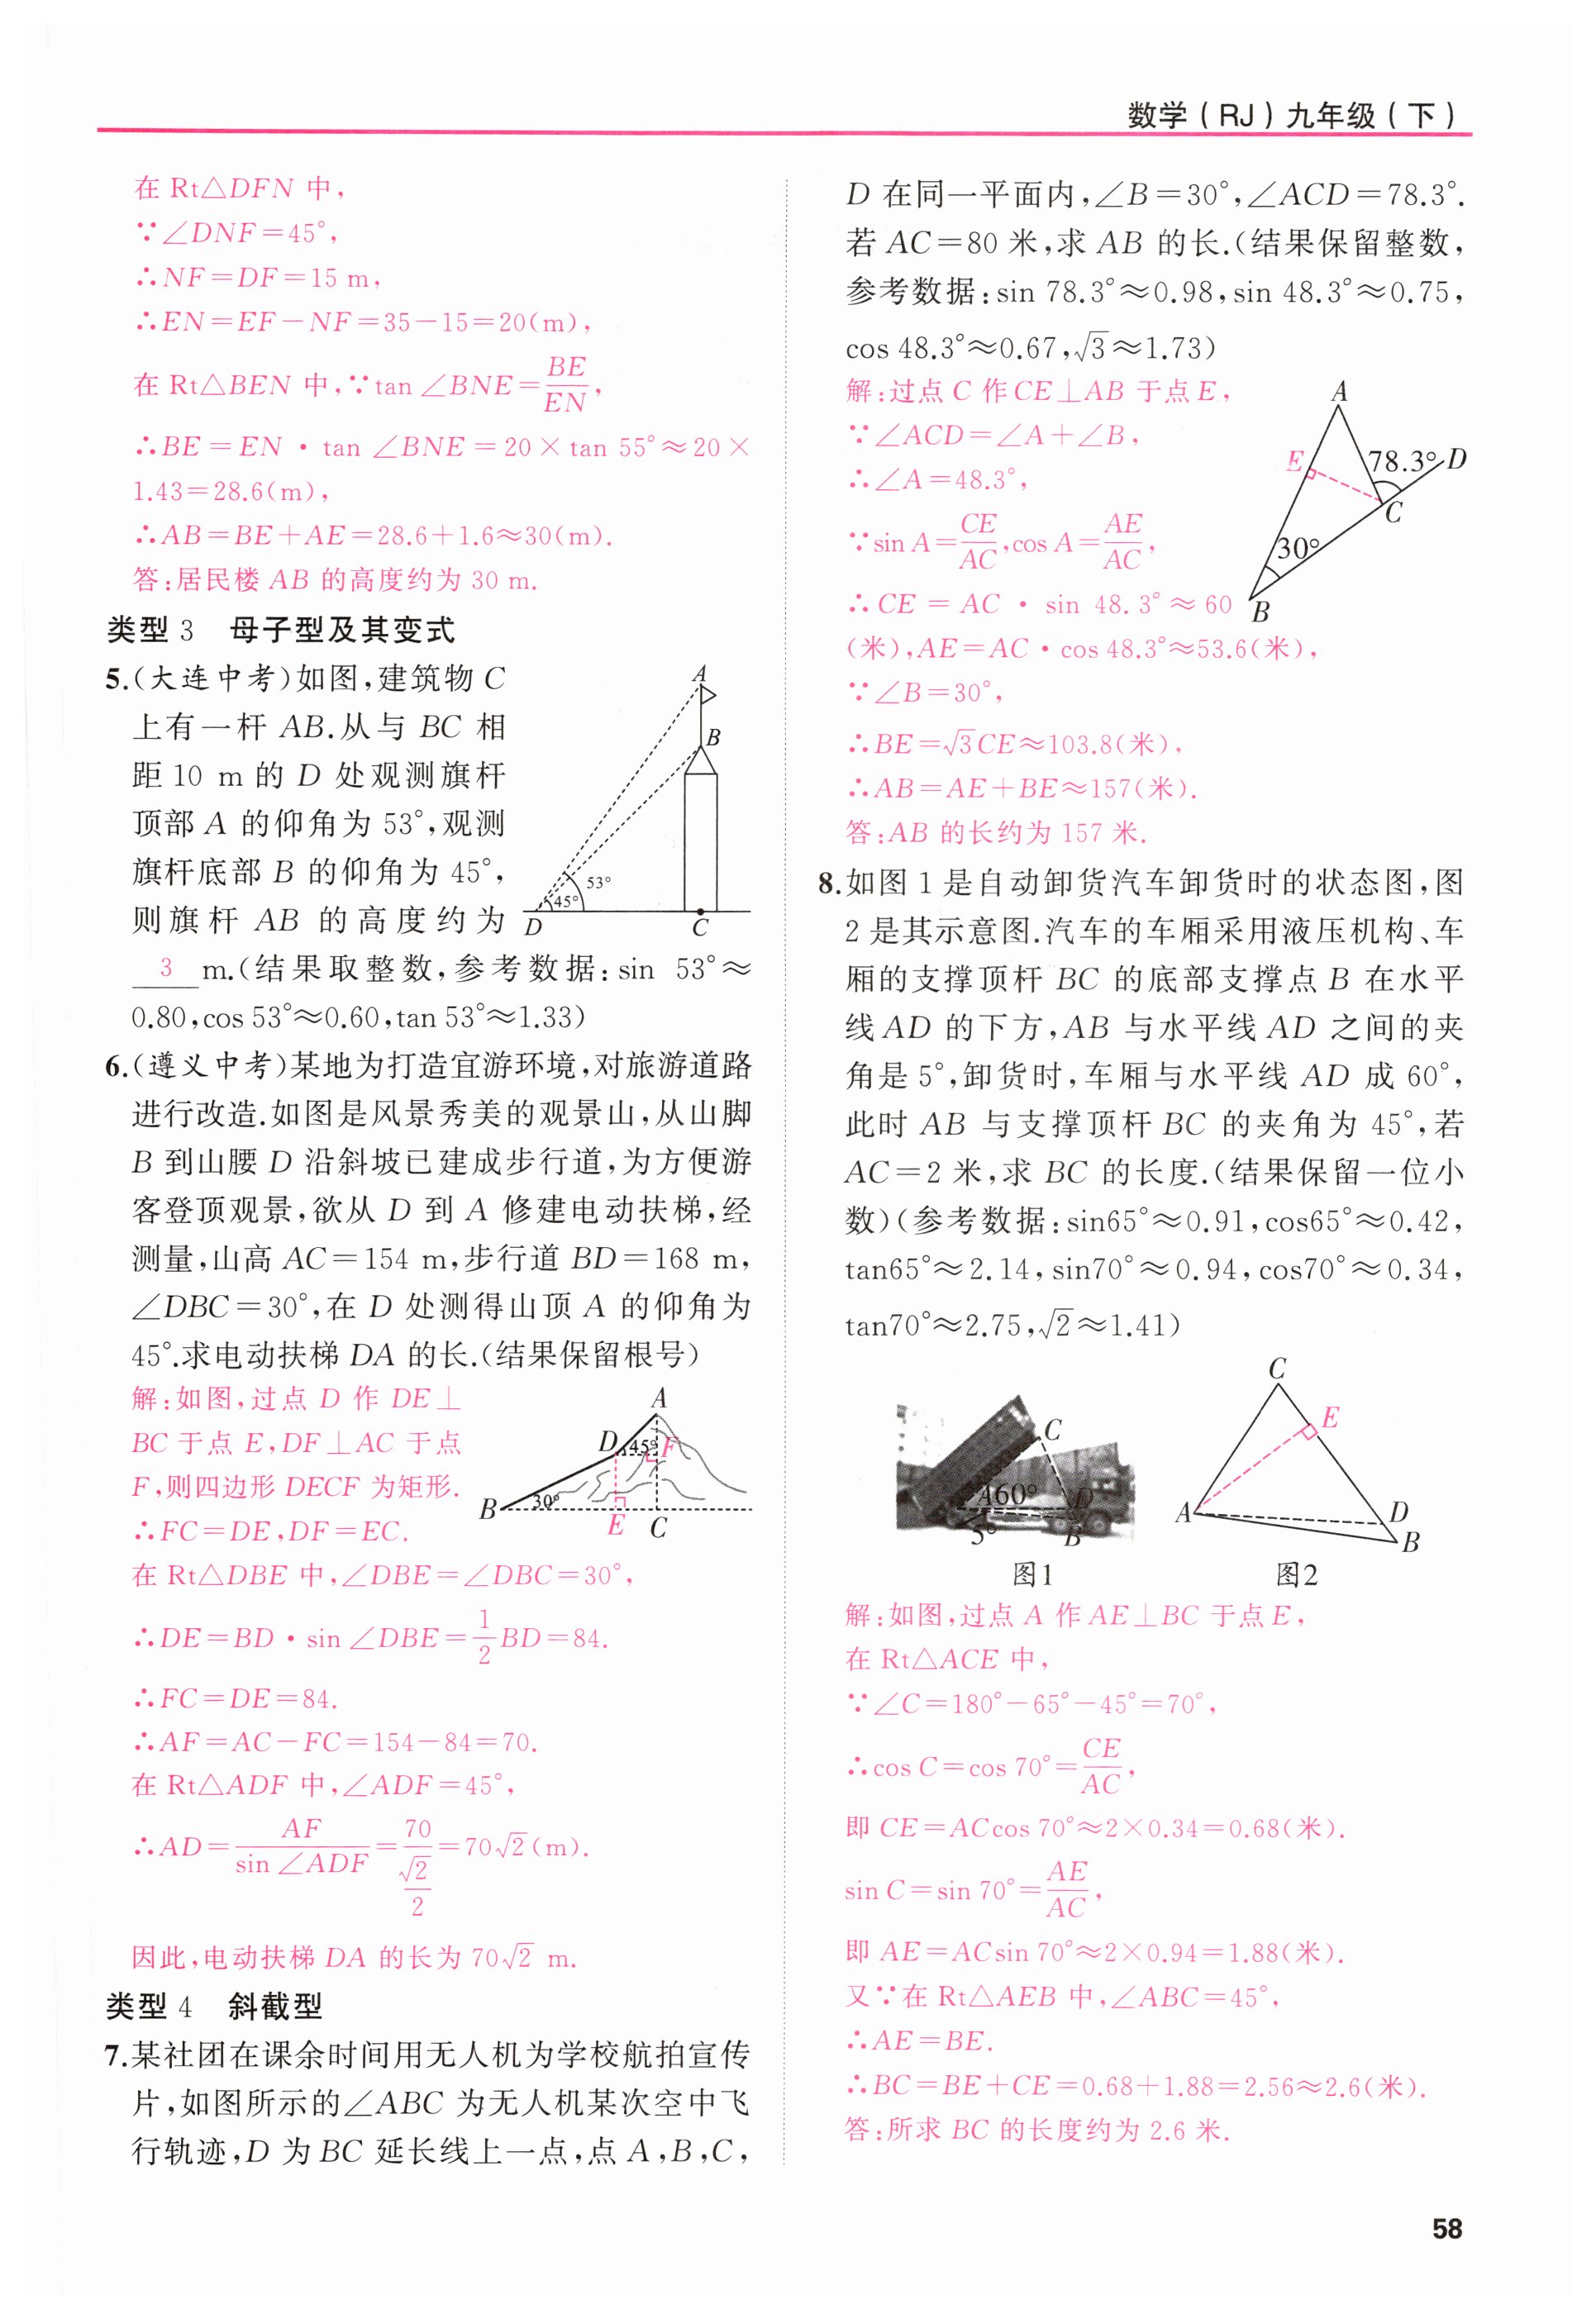 数学(RJ)九年级(下)
在 Rt△DFN 中,
∵∠DNF=45°,
∴NF=DF=15 m,
∴EN=EF-NF=35-15=20(m),
在 Rt△BEN 中,∵tan ∠BNE=BE/EN,
∴BE=EN·tan ∠BNE=20×tan 55°≈20×
1.43=28.6(m),
∴AB=BE+AE=28.6+1.6≈30(m).
答:居民楼 AB 的高度约为 30 m.
类型 3 母子型及其变式
5.(大连中考)如图,建筑物 C
上有一杆 AB.从与 BC 相
距 10 m 的 D 处观测旗杆
顶部 A 的仰角为 53°,观测
旗杆底部 B 的仰角为 45°,
则旗杆 AB 的高度约为
3 m.(结果取整数,参考数据:sin 53°≈
0.80,cos 53°≈0.60,tan 53°≈1.33)
A
B
53°
45°
D
C
6.(遵义中考)某地为打造宜游环境,对旅游道路
进行改造.如图是风景秀美的观景山,从山脚
B 到山腰 D 沿斜坡已建成步行道,为方便游
客登顶观景,欲从 D 到 A 修建电动扶梯,经
测量,山高 AC=154 m,步行道 BD=168 m,
∠DBC=30°,在 D 处测得山顶 A 的仰角为
45°.求电动扶梯 DA 的长.(结果保留根号)
解:如图,过点 D 作 DE⊥
BC 于点 E,DF⊥AC 于点
F,则四边形 DECF 为矩形.
∴FC=DE,DF=EC.
A
D 45° F
B 30°
E C
在 Rt△DBE 中,∠DBE=∠DBC=30°,
∴DE=BD·sin ∠DBE=1/2BD=84.
∴FC=DE=84.
∴AF=AC-FC=154-84=70.
在 Rt△ADF 中,∠ADF=45°,
∴AD=AF/sin ∠ADF=70/(√2/2)=70√2(m).
因此,电动扶梯 DA 的长为 70√2 m.
类型 4 斜截型
7.某社团在课余时间用无人机为学校航拍宣传
片,如图所示的∠ABC 为无人机某次空中飞
行轨迹,D 为 BC 延长线上一点,点 A,B,C,
D 在同一平面内,∠B=30°,∠ACD=78.3°.
若 AC=80 米,求 AB 的长.(结果保留整数,
参考数据:sin 78.3°≈0.98,sin 48.3°≈0.75,
cos 48.3°≈0.67,√3≈1.73)
解:过点 C 作 CE⊥AB 于点 E,
∵∠ACD=∠A+∠B,
∴∠A=48.3°,
∵sin A=CE/AC,cos A=AE/AC,
∴CE=AC·sin 48.3°≈60
(米),AE=AC·cos 48.3°≈53.6(米),
∵∠B=30°,
∴BE=√3CE≈103.8(米),
∴AB=AE+BE≈157(米).
答:AB 的长约为 157 米.
A
E 78.3° D
C
30°
B
8.如图 1 是自动卸货汽车卸货时的状态图,图
2 是其示意图.汽车的车厢采用液压机构、车
厢的支撑顶杆 BC 的底部支撑点 B 在水平
线 AD 的下方,AB 与水平线 AD 之间的夹
角是 5°,卸货时,车厢与水平线 AD 成 60°,
此时 AB 与支撑顶杆 BC 的夹角为 45°,若
AC=2 米,求 BC 的长度.(结果保留一位小
数)(参考数据:sin65°≈0.91,cos65°≈0.42,
tan65°≈2.14,sin70°≈0.94,cos70°≈0.34,
tan70°≈2.75,√2≈1.41)
C
A60° D
5° B
图1
C
E
A D
B
图2
解:如图,过点 A 作 AE⊥BC 于点 E,
在 Rt△ACE 中,
∵∠C=180°-65°-45°=70°,
∴cos C=cos 70°=CE/AC,
即 CE=ACcos 70°≈2×0.34=0.68(米).
sin C=sin 70°=AE/AC,
即 AE=ACsin 70°≈2×0.94=1.88(米).
又∵在 Rt△AEB 中,∠ABC=45°,
∴AE=BE.
∴BC=BE+CE=0.68+1.88=2.56≈2.6(米).
答:所求 BC 的长度约为 2.6 米.
58